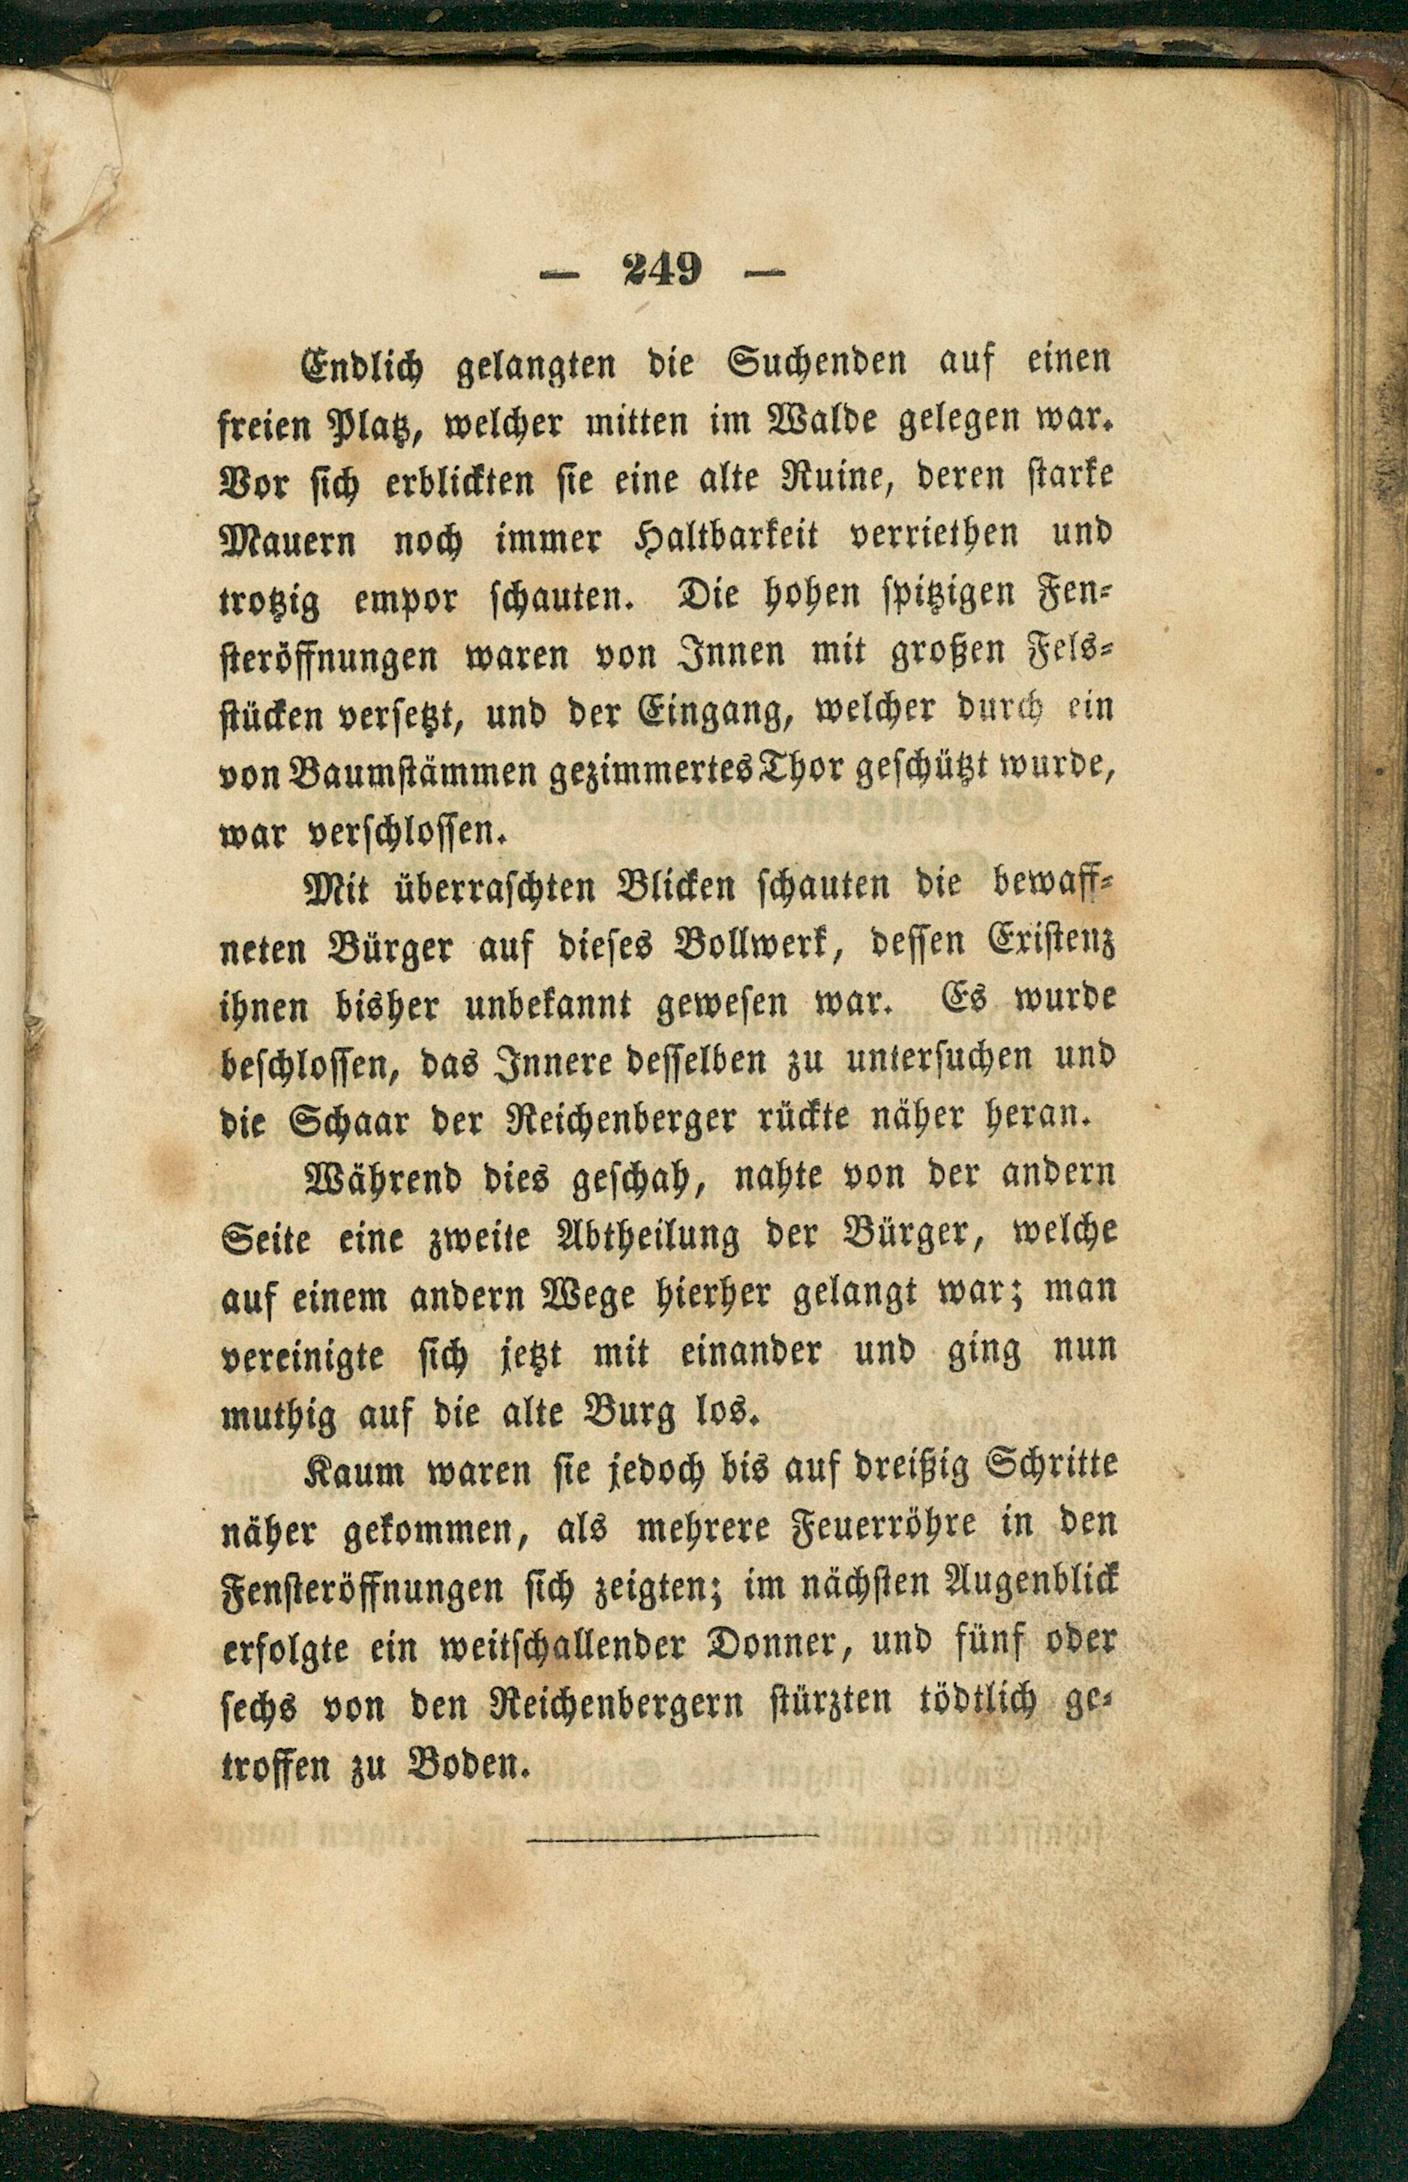 — 249 —
Endlich gelangten die Suchenden auf einen
freien Platz, welcher mitten im Walde gelegen war.
Vor sich erblickten sie eine alte Ruine, deren starke
Mauern noch immer Haltbarkeit verriethen und
trotzig empor schauten. Die hohen spitzigen Fen-
steröffnungen waren von Innen mit großen Fels-
stücken versetzt, und der Eingang, welcher durch ein
von Baumstämmen gezimmertes Thor geschützt wurde,
war verschlossen.
Mit überraschten Blicken schauten die bewaff-
neten Bürger auf dieses Bollwerk, dessen Existenz
ihnen bisher unbekannt gewesen war. Es wurde
beschlossen, das Innere desselben zu untersuchen und
die Schaar der Reichenberger rückte näher heran.
Während dies geschah, nahte von der andern
Seite eine zweite Abtheilung der Bürger, welche
auf einem andern Wege hierher gelangt war; man
vereinigte sich jetzt mit einander und ging nun
muthig auf die alte Burg los.
Kaum waren sie jedoch bis auf dreißig Schritte
näher gekommen, als mehrere Feuerröhre in den
Fensteröffnungen sich zeigten; im nächsten Augenblick
erfolgte ein weitschallender Donner, und fünf oder
sechs von den Reichenbergern stürzten tödtlich ge-
troffen zu Boden.